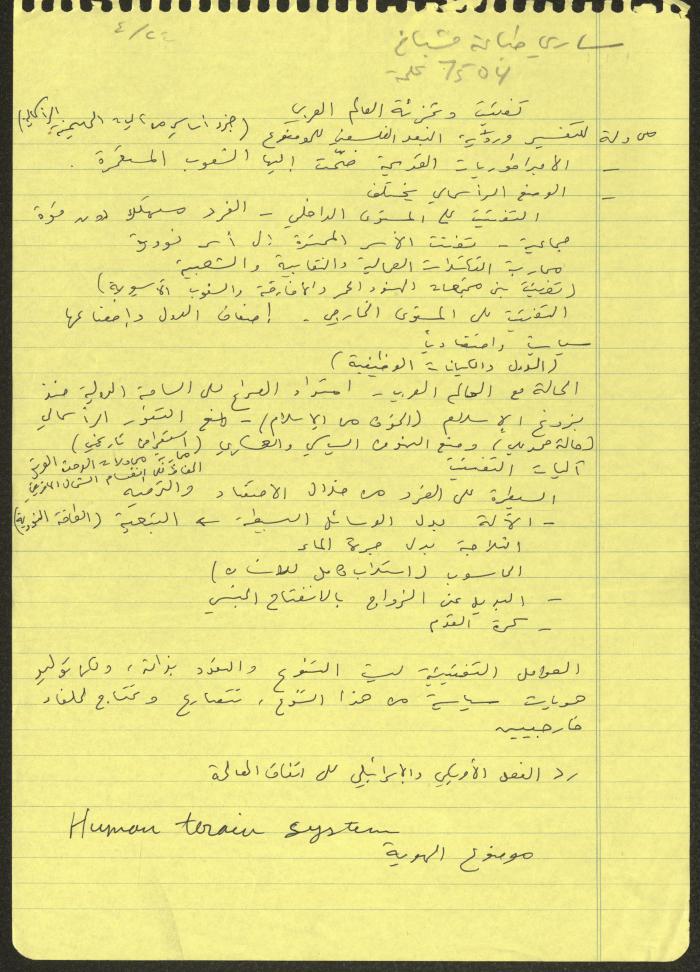 ٤/٢٤
ساري طباعة
7504 كلمة
تفتيت وتجزئة العالم العربي
محاولة للتفسير ورؤية النقد الفلسفي للموضوع (جزء أساسي من آليات الهيمنة الرأسمالية)
- الامبراطوريات القديمة ضمّت إليها الشعوب المستعمَرة.
- الوضع الرأسمالي يختلف
التفتيت على المستوى الداخلي - الفرد مستهلكا دون قوة
جماعية - تفتت الأسر الممتدة إلى أسر نووية
محاربة التكتلات العمالية والنقابية والشعبية
(تفتيت بين مجتمعات الهنود الحمر والأفارقة والشعوب الآسيوية)
التفتيت على المستوى الخارجي - إضعاف الدول وإخضاعها
سياسياً واقتصادياً
(الدول والكيانات الوظيفية)
الحالة مع العالم العربي - امتداد الصراع على الساحة الدولية منذ
بزوغ الإسلام (الخوف من الإسلام) - لمنع التطور الرأسمالي
(حالة محمد علي) ومنع النهوض السياسي والحضاري (استعراض تاريخي)
محاربة محاولات الوحدة العربية
الحفاظ على انقسام الشمال
آليات التفتيت
السيطرة على الفرد من خلال الاقتصاد والترفيه
- الآلة بدل الوسائل البسيطة ← التبعية (الطاقة النووية)
الثلاجة بدل جرة الماء
الحاسوب (استلاب كامل للإنسان)
- البديل عن الزواج بالانفتاح الجنسي
- كرة القدم
العوامل التفتيتية ليست التنوع والتعدد بذاته، ولكن توليد
هويات سياسية من هذا التنوع، تتصارع وتحتاج لحلفاء
خارجيين
رد الفعل الأمريكي والإسرائيلي على اتفاق المصالحة
Human terain system
موضوع الهوية